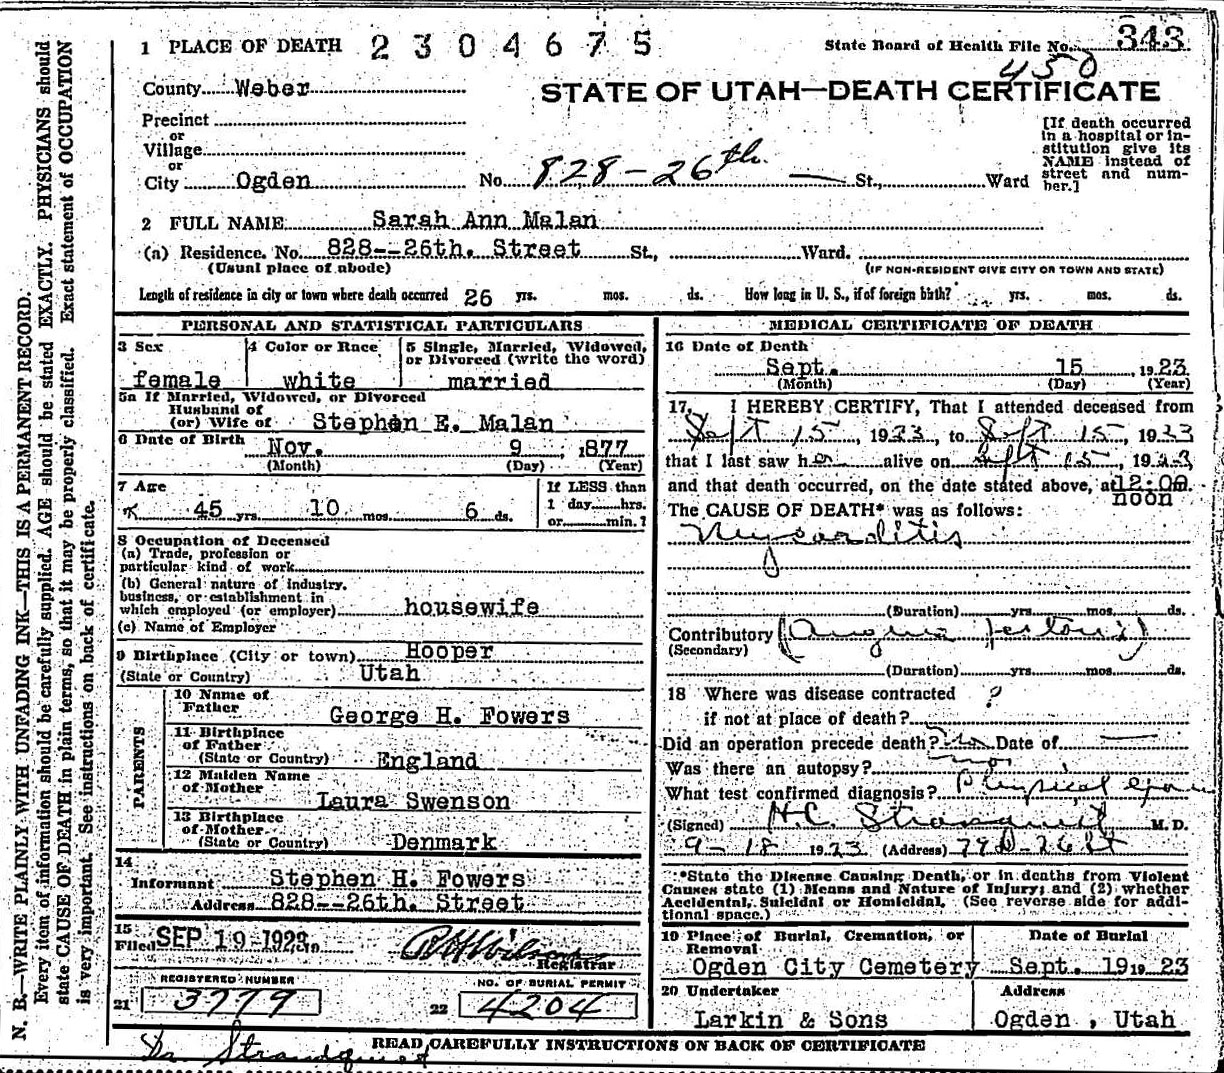 N. B.—WRITE PLAINLY WITH UNFADING INK—THIS IS A PERMANENT RECORD.
Every item of information should be carefully supplied. AGE should be stated EXACTLY. PHYSICIANS should
state CAUSE OF DEATH in plain terms, so that it may be properly classified. Exact statement of OCCUPATION
is very important. See instructions on back of certificate.
1 PLACE OF DEATH 2304675 State Board of Health File No. 343
450
County Weber STATE OF UTAH—DEATH CERTIFICATE
Precinct
or
Village
or
City Ogden No. 828-26th. St., Ward
[If death occurred
in a hospital or in-
stitution give its
NAME instead of
street and num-
ber.]
2 FULL NAME Sarah Ann Malan
(a) Residence. No. 828--26th. Street St., Ward.
(Usual place of abode) (IF NON-RESIDENT GIVE CITY OR TOWN AND STATE)
Length of residence in city or town where death occurred 26 yrs. mos. ds. How long in U. S., if of foreign birth? yrs. mos. ds.
PERSONAL AND STATISTICAL PARTICULARS
3 Sex 4 Color or Race 5 Single, Married, Widowed,
or Divorced (write the word)
female white married
5a If Married, Widowed, or Divorced
Husband of
(or) Wife of Stephen E. Malan
6 Date of Birth Nov. 9 , 1877
(Month) (Day) (Year)
7 Age If LESS than
45 yrs. 10 mos. 6 ds. 1 day......hrs.
or......min.?
8 Occupation of Deceased
(a) Trade, profession or
particular kind of work
(b) General nature of industry,
business, or establishment in
which employed (or employer) housewife
(c) Name of Employer
9 Birthplace (City or town) Hooper
(State or Country) Utah
PARENTS
10 Name of
Father George H. Fowers
11 Birthplace
of Father
(State or Country) England
12 Maiden Name
of Mother Laura Swenson
13 Birthplace
of Mother
(State or Country) Denmark
14
Informant Stephen H. Fowers
Address 828--26th. Street
15
Filed SEP 19 1923 19
Registrar
REGISTERED NUMBER NO. OF BURIAL PERMIT
21 3779 22 4204
MEDICAL CERTIFICATE OF DEATH
16 Date of Death
Sept. 15 , 1923
(Month) (Day) (Year)
17. I HEREBY CERTIFY, That I attended deceased from
Sept 15 , 1923, to Sept 15, 1923
that I last saw her alive on Sept 15, 1923
and that death occurred, on the date stated above, at 12:00 m.
noon
The CAUSE OF DEATH* was as follows:
Myocarditis
(Duration) yrs. mos. ds.
Contributory (Angina Pectoris)
(Secondary)
(Duration) yrs. mos. ds.
18 Where was disease contracted ?
if not at place of death?
Did an operation precede death? No Date of —
Was there an autopsy? no
What test confirmed diagnosis? Physical Exam
(Signed) H.C. Strandquist M. D.
9-18 1923 (Address)
*State the Disease Causing Death, or in deaths from Violent
Causes state (1) Means and Nature of Injury; and (2) whether
Accidental, Suicidal or Homicidal. (See reverse side for addi-
tional space.)
19 Place of Burial, Cremation, or Date of Burial
Removal
Ogden City Cemetery Sept. 19 19 23
20 Undertaker Address
Larkin & Sons Ogden , Utah
READ CAREFULLY INSTRUCTIONS ON BACK OF CERTIFICATE
Dr. Strandquist